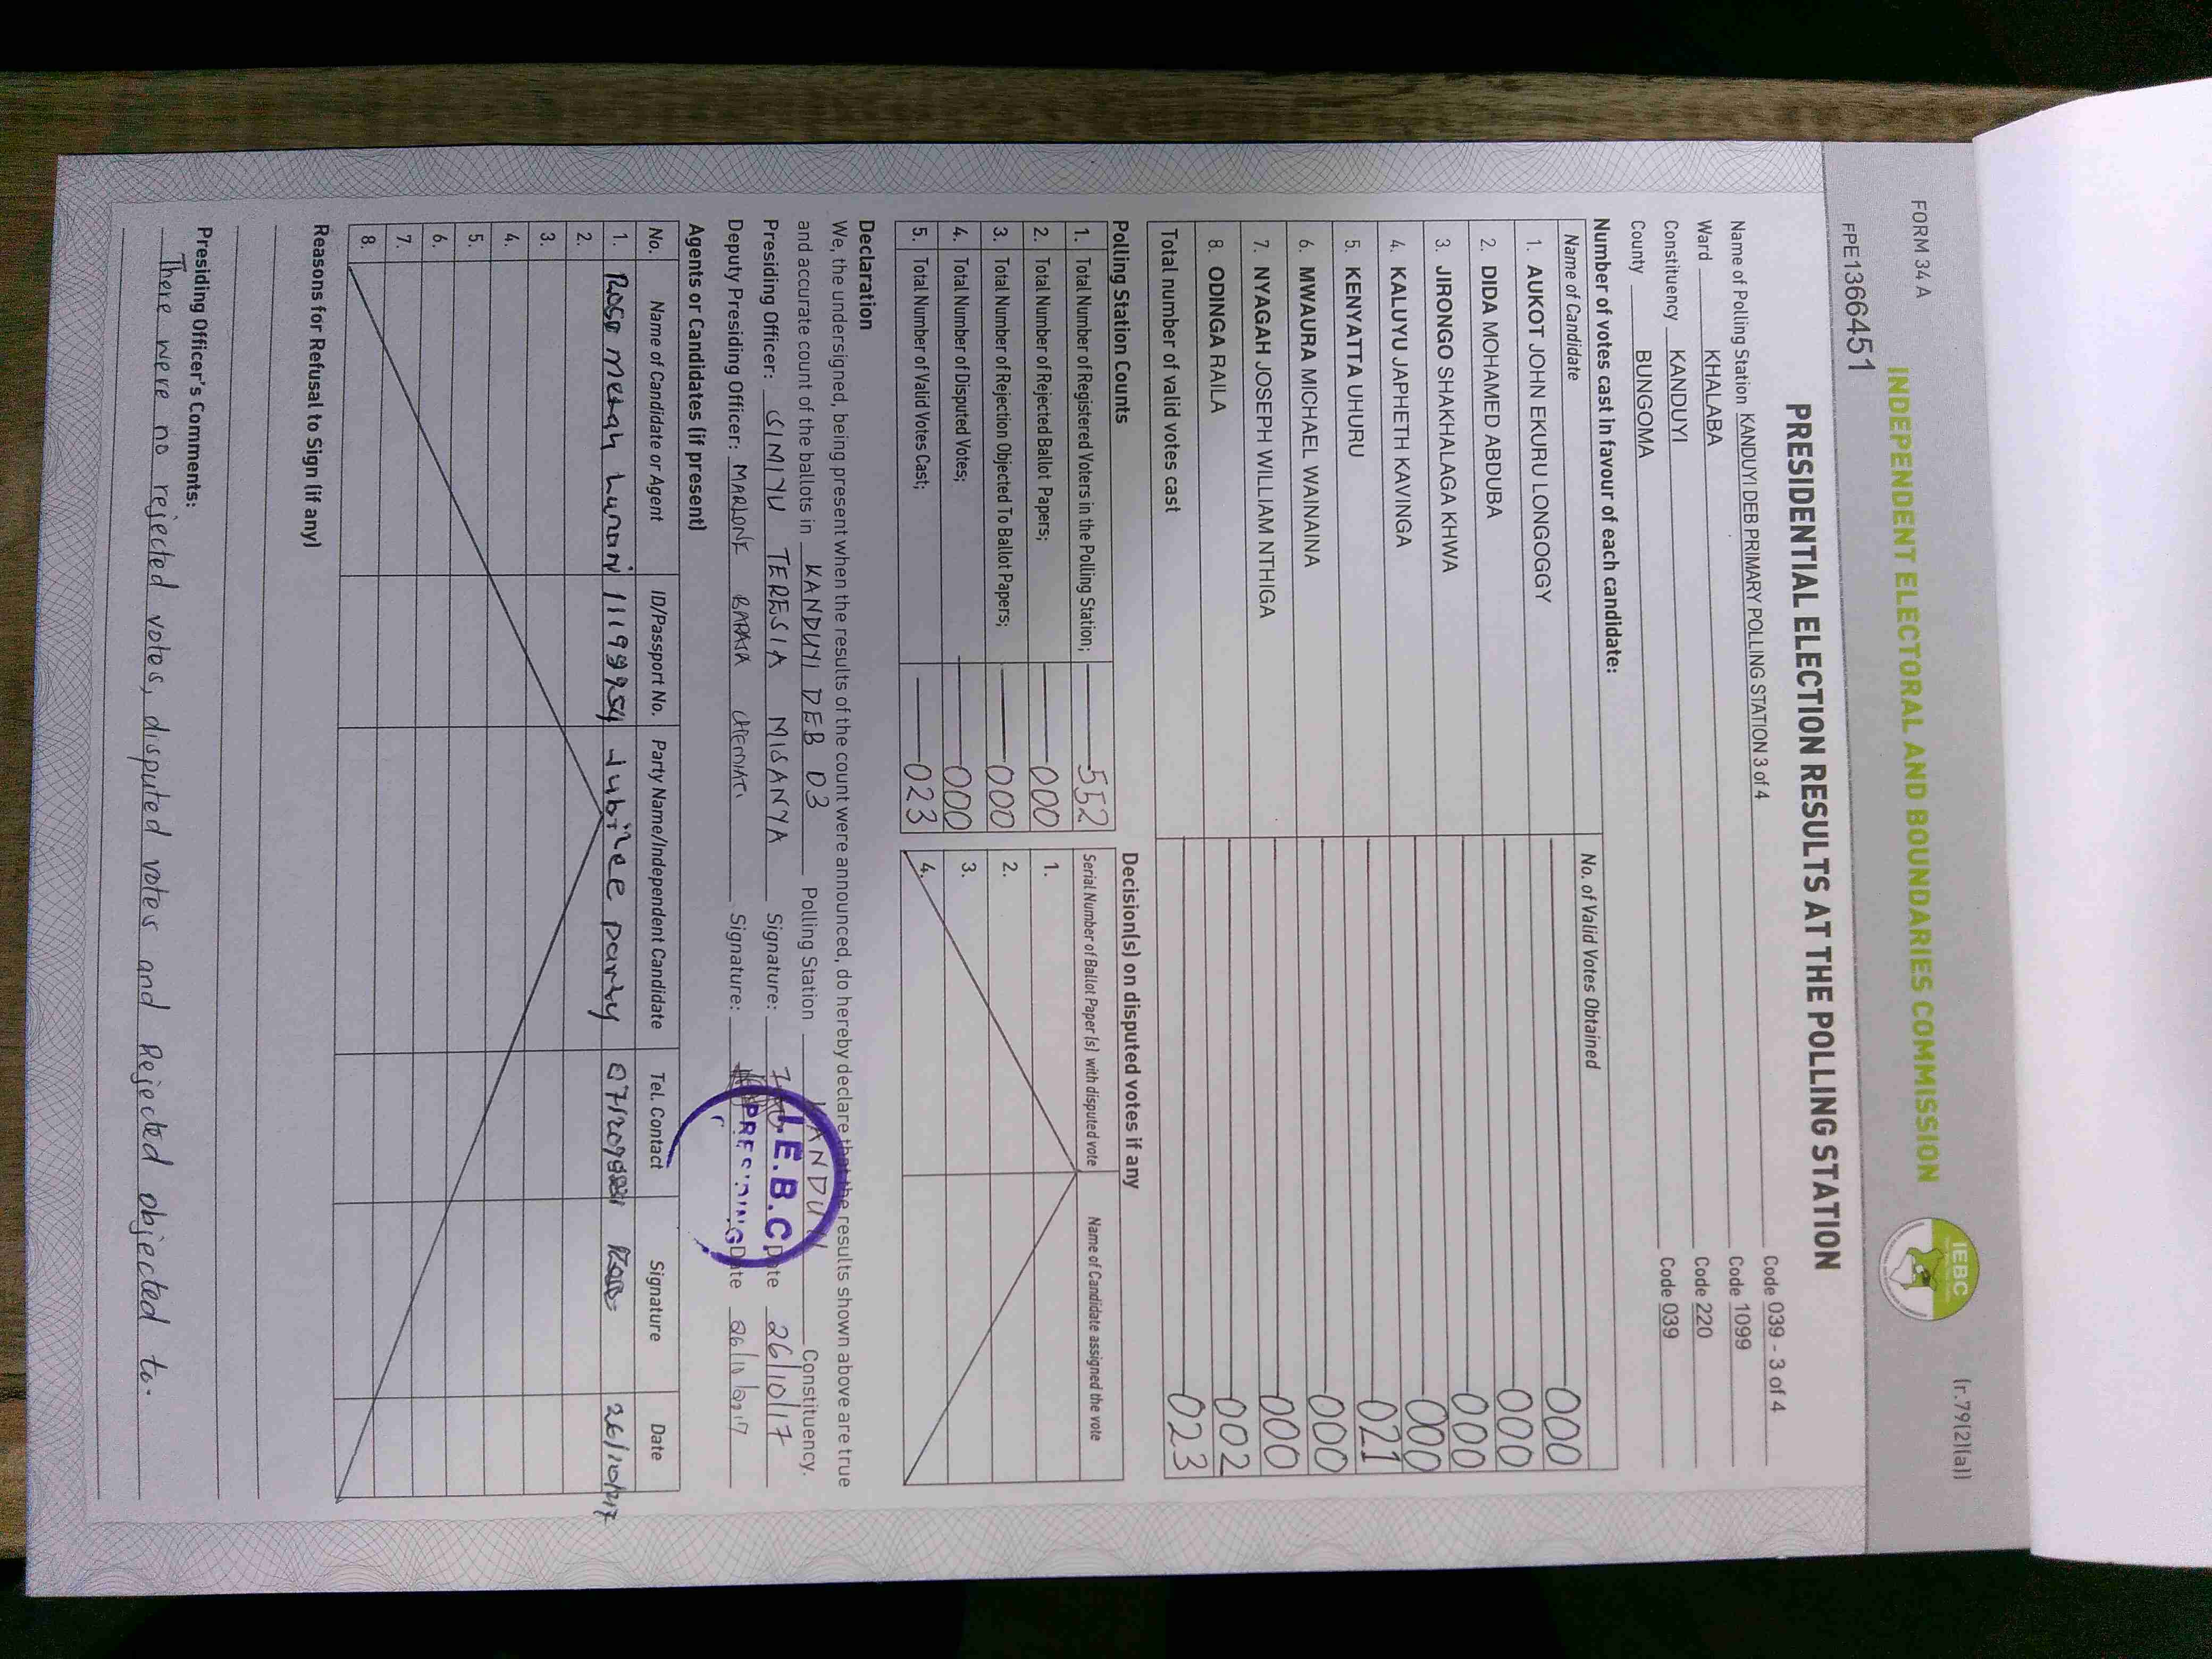 FORM 34 A
(r.79(2)(a))
INDEPENDENT ELECTORAL AND BOUNDARIES COMMISSION
IEBC
FPE1366451
PRESIDENTIAL ELECTION RESULTS AT THE POLLING STATION
Name of Polling Station KANDUYI DEB PRIMARY POLLING STATION 3 of 4 Code 039 - 3 of 4
Ward KHALABA Code 1099
Constituency KANDUYI Code 220
County BUNGOMA Code 039
Number of votes cast in favour of each candidate:
Name of Candidate No. of Valid Votes Obtained
1. AUKOT JOHN EKURU LONGOGGY 000
2. DIDA MOHAMED ABDUBA 000
3. JIRONGO SHAKHALAGA KHWA 000
4. KALUYU JAPHETH KAVINGA 000
5. KENYATTA UHURU 021
6. MWAURA MICHAEL WAINAINA 000
7. NYAGAH JOSEPH WILLIAM NTHIGA 000
8. ODINGA RAILA 002
Total number of valid votes cast 023
Polling Station Counts
1. Total Number of Registered Voters in the Polling Station; 552
2. Total Number of Rejected Ballot Papers; 000
3. Total Number of Rejection Objected To Ballot Papers; 000
4. Total Number of Disputed Votes; 000
5. Total Number of Valid Votes Cast; 023
Decision(s) on disputed votes if any
Serial Number of Ballot Paper (s) with disputed vote Name of Candidate assigned the vote
1.
2.
3.
4.
Declaration
We, the undersigned, being present when the results of the count were announced, do hereby declare that the results shown above are true
and accurate count of the ballots in KANDUYI DEB 03 Polling Station KANDUYI Constituency.
Presiding Officer: SIMIYU TERESIA MISANYA Signature: Date 26/10/17
Deputy Presiding Officer: MARLONE BARASA Signature: Date 26/10/2017
I.E.B.C
PRESIDING
Agents or Candidates (if present)
No. Name of Candidate or Agent ID/Passport No. Party Name/Independent Candidate Tel. Contact Signature Date
1. Rose 11199954 Jubilee party 26/10/2017
2.
3.
4.
5.
6.
7.
8.
Reasons for Refusal to Sign (if any)
Presiding Officer's Comments:
There were no rejected votes, disputed votes and Rejected objected to.